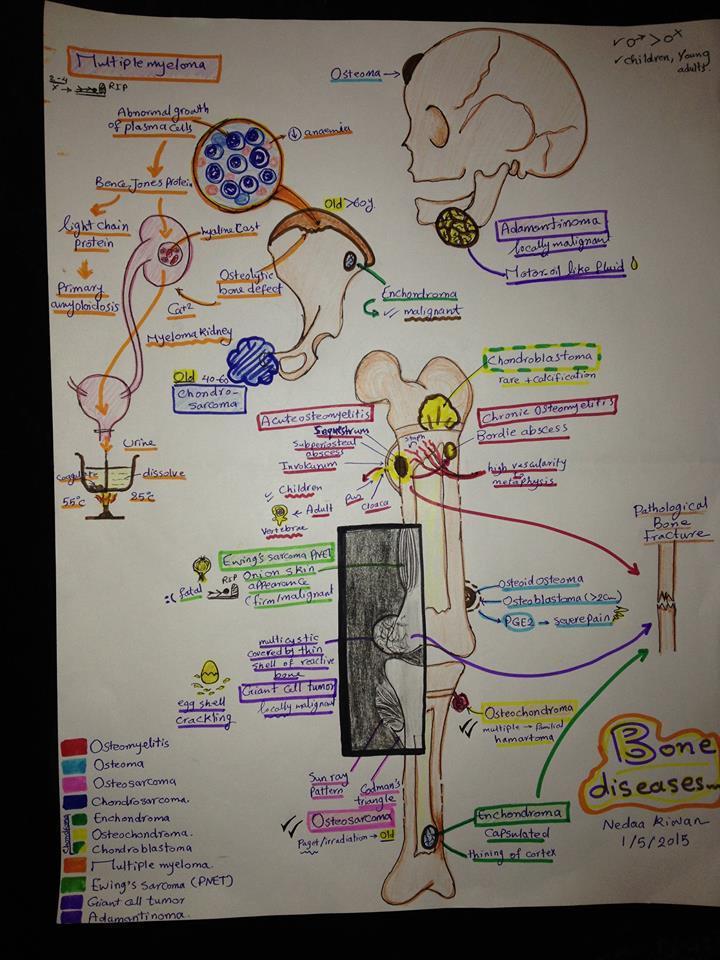 Multiple myeloma
2-4
x → RIP
Abnormal growth
of plasma cells
↓ anaemia
Bence Jones Protein
light chain
protein
hyaline cast
Primary
amyloidosis
Ca+2
Myeloma kidney
Osteolytic
bone defect
Old >60y
Enchondroma
malignant
Old 40-60
Chondro-
sarcoma
Urine
coagulate
dissolve
55°c
85°c
Osteoma
✓ ♂ > ♀
✓ children, young
adults.
Adamantinoma
locally malignant
Motor oil like fluid
Chondroblastoma
rare + calcification
Acute osteomyelitis
Sequestrum
Subperiosteal
abscess
Involcrum
✓ Children
Adult
Vertebrae
Pus
Cloaca
staph
Chronic Osteomyelitis
Bordie abscess
high vascularity
metaphysis
Pathological
Bone
Fracture
Ewing's sarcoma PNET
Onion skin
appearance
(firm/malignant)
RIP
:( fatal
Osteoid osteoma
Osteoblastoma (>2cm)
PGE2 → severe pain
multicystic
covered by thin
shell of reactive
bone
Giant Cell tumor
locally malignant
egg shell
crackling
Osteochondroma
multiple → familial
hamartoma
Sun ray
pattern
Codman's
triangle
Osteosarcoma
Paget/irradiation → Old
Enchondroma
Capsulated
thining of cortex
Bone
diseases...
Nedaa Riwan
1/5/2015
Osteomyelitis
Osteoma
Osteosarcoma
Chondrosarcoma.
Chondroma
Enchondroma
Osteochondroma.
Chondroblastoma
Multiple myeloma.
Ewing's Sarcoma (PNET)
Giant Cell tumor
Adamantinoma.